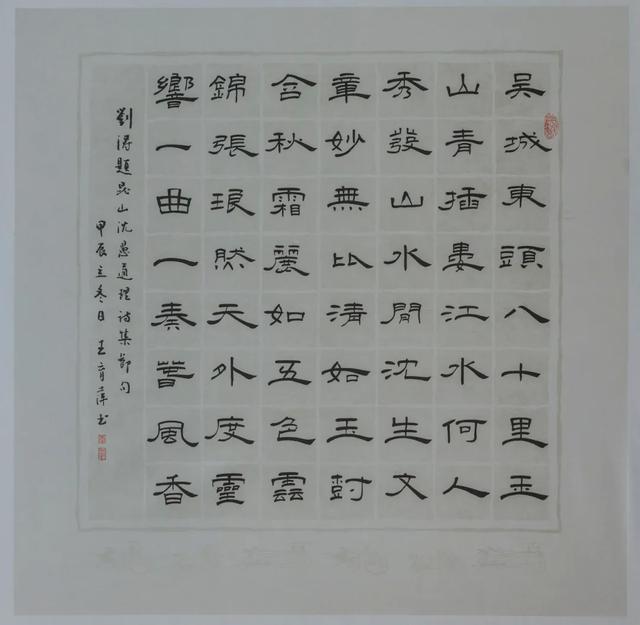 吳城東頭八十里玉
山青插婁江水何人
秀發山水間沈生文
章妙無比清如玉尌
含秋霜麗如五色雲
錦張琅然天外度靈
響一曲一奏萅風香
劉溥題崑山沈愚通理詩集節句
甲辰立冬日 王育萍书